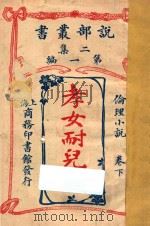 說部叢書
二集
第一編
倫理小說 卷下
孝女耐兒
上海商務印書館發行